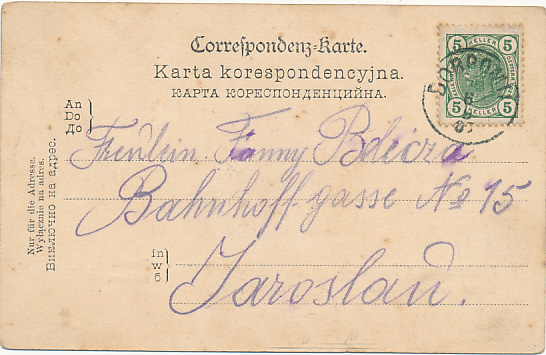 Correspondenz-Karte.
Karta korespondencyjna.
КАРТА КОРЕСПОНДЕНЦИЙНА.
5 HELLER 5
5 HELLER 5
6
9
An
Do
До
Fräulein Fanny
Bahnhoffgasse No 15
in
w
б
Jaroslau.
Nur für die Adresse.
Wyłącznie na adres.
Виключно на адрес.